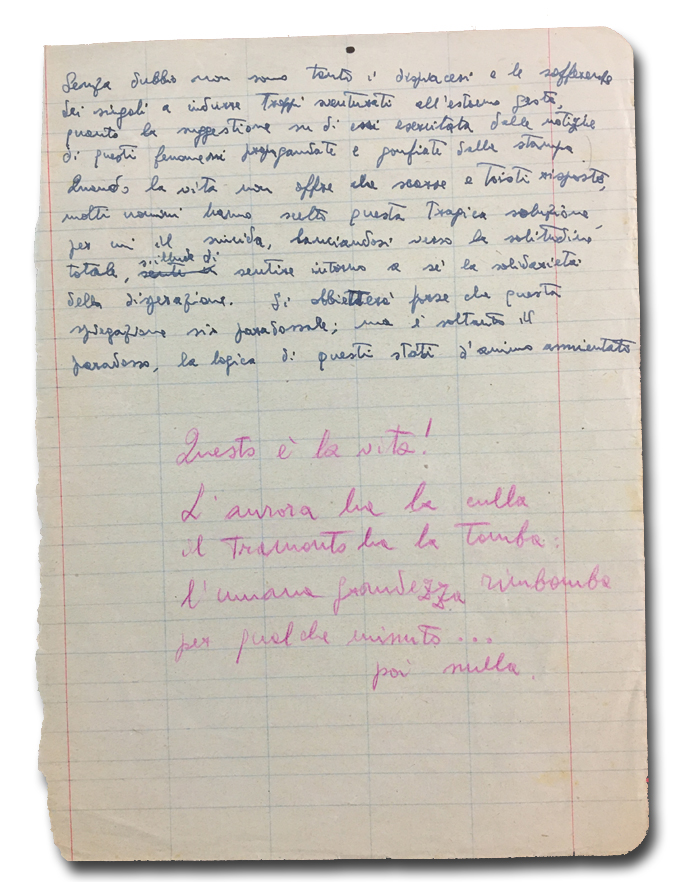 Senza dubbio non sono tanto i dispiaceri e le sofferenze
dei singoli a indurre troppi sventurati all'estremo gesto,
quanto la suggestione su di essi esercitata dalle notizie
di questi fenomeni propagandate e gonfiate dalla stampa
Quando la vita non offre che scarse e tristi risposte,
molti uomini hanno scelto questa tragica soluzione
per cui il suicida, lanciandosi verso la solitudine
s'illude di
totale, sentire intorno a sé la solidarietà
della disperazione. Si obbietterà forse che questa
spiegazione sia paradossale; ma è soltanto il
paradosso, la logica di questi stati d'animo
Questo è la vita!
L'aurora ha la culla
il Tramonto ha la Tomba:
l'umana grandezza rimbomba
per qualche minuto...
poi nulla.